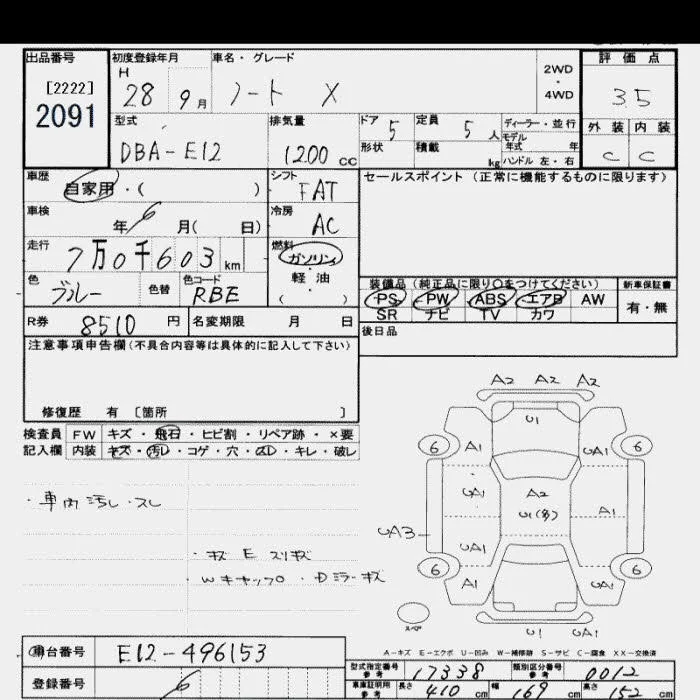 出品番号 初度登録年月 車名・グレード 評価点
[2222] H 2WD
2091 28 9月 ノート X ・ 35
4WD
型式 排気量 ドア 5 定員 5人 ディーラー・並行 外装 内装
DBA-E12 1200cc 形状 積載 kg モデル年式 年 C C
ハンドル 左・右
車歴 シフト セールスポイント(正常に機能するものに限ります)
自家用・( ) FAT
車検 冷房
年 6月( 日) AC
走行 燃料
7万0千603km ガソリン
色 色替 色コード 軽油 装備品(純正品に限り〇をつけてください) 新車保証書
ブルー RBE ( ) PS PW ABS エアB AW 有・無
SR ナビ TV カワ
R券 8510円 名変期限 月 日 後日品
注意事項申告欄(不具合内容等は具体的に記入して下さい)
修復歴 有 〔箇所 〕
検査員 FW キズ・飛石・ヒビ割・リペア跡・×要
記入欄 内装 キズ・汚レ・コゲ・穴・スレ・キレ・破レ
・車内汚し・スレ
・キズ E スリキズ
・Wキャップ・Dミラーキズ
A2 A2 A2
U1
6 A1 UA1 6
UA1 A2 A1
U1(多)
UA3
UA1
6 A1 UA1 6
スペア U1 UA1
A-キズ E-エクボ U-凹み W-補修跡 S-サビ C-腐食 XX-交換済
車台番号 E12-496153
登録番号 6
型式指定番号 参考 17338 類別区分番号 参考 0012
車庫証明用 参考 長さ 410cm 幅 169cm 高さ 152cm